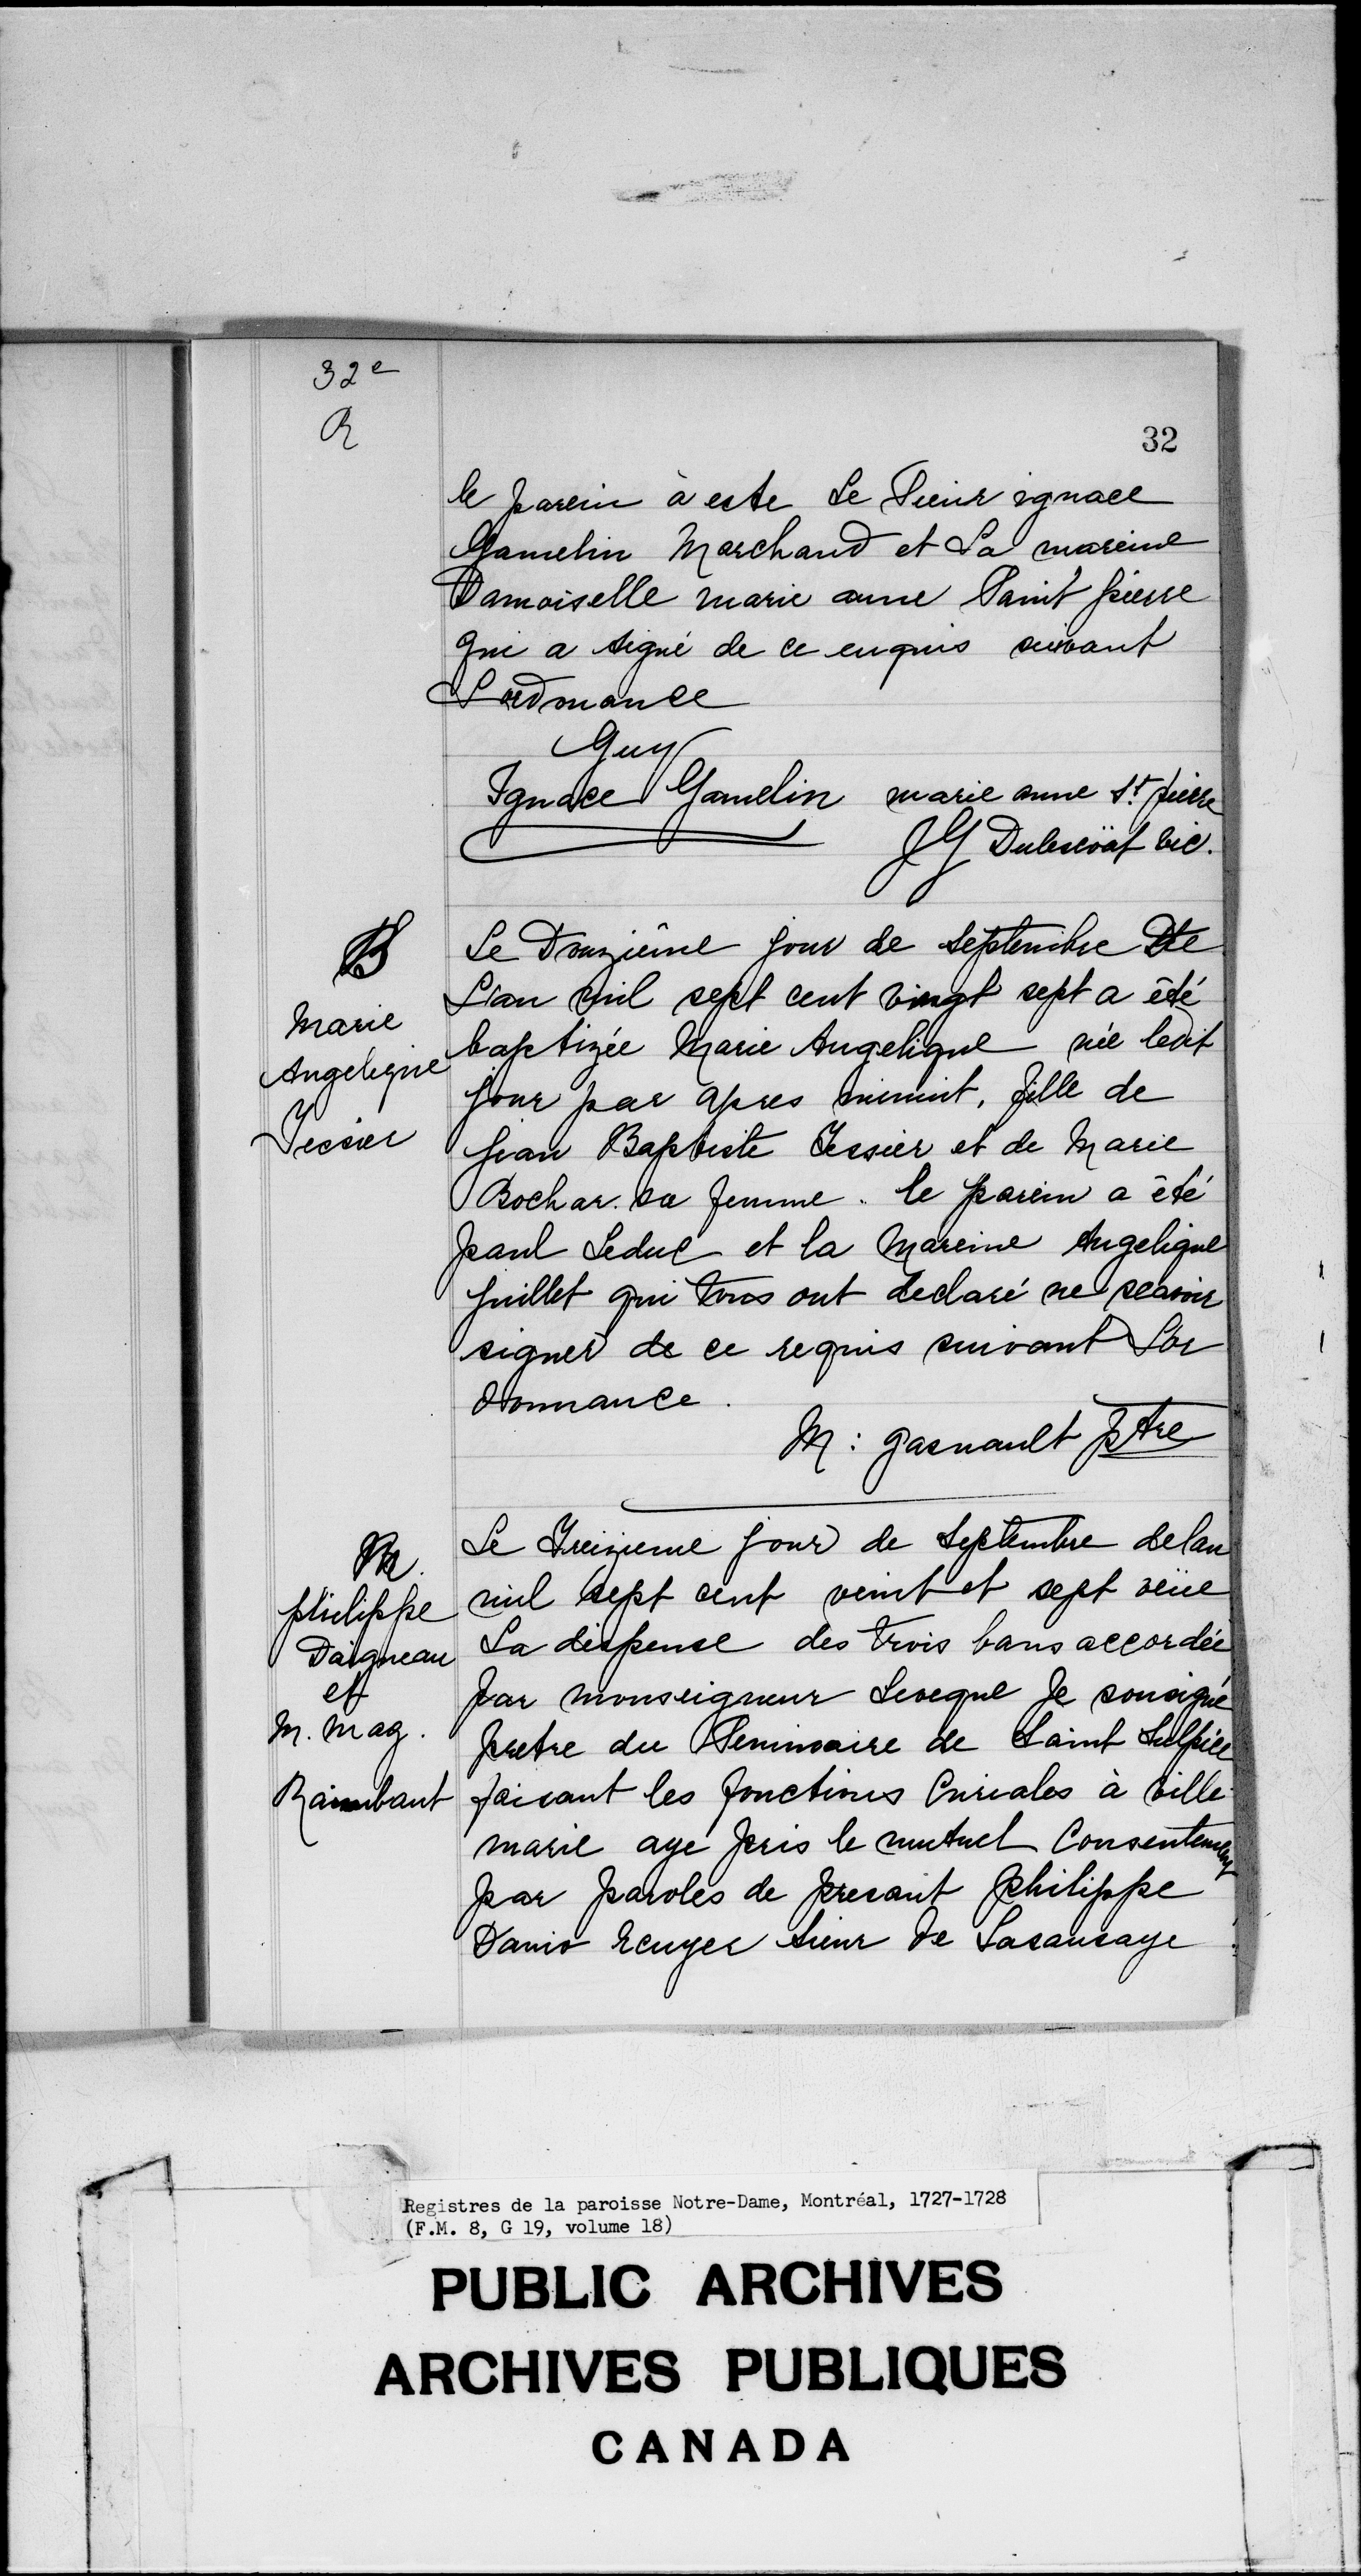 32e
R
32
le parein à este Le Sieur ignace
Gamelin Marchand et La mareine
Damoiselle marie anne Saint pierre
qui a signé de ce enquis suivant
L'ordonnance
Guy
Ignace Gamelin marie anne St. pierre
JG Dulescöat vic.
B
Marie
Angelique
Tessier
Le Douzième jour de septembre De
L'an mil sept cent vingt sept a été
baptizée Marie Angelique née ledit
jour par apres minuit, fille de
jean Baptiste Tessier et de Marie
Rochar. sa femme. le parein a été
paul Leduc et la mareine Angelique
juillet qui tous ont declaré ne scavoir
signer de ce requis suivant L'or
donnance.
M: gasnault ptre
M.
philippe
Daigneau
et
M. Mag.
Raimbaut
Le Treizieme jour de Septembre delan
mil sept cent vint et sept veüe
La dispense des trois bans accordée
par monseigneur Leveque Je sousigné
pretre du Seminaire de Saint Sulpice
faisant les fonctions Curiales à ville
marie aye pris le mutuel Consentement
par paroles de present philippe
Danio Ecuyer Sieur De Lasausaye
Registres de la paroisse Notre-Dame, Montréal, 1727-1728
(F.M. 8, G 19, volume 18)
PUBLIC ARCHIVES
ARCHIVES PUBLIQUES
CANADA